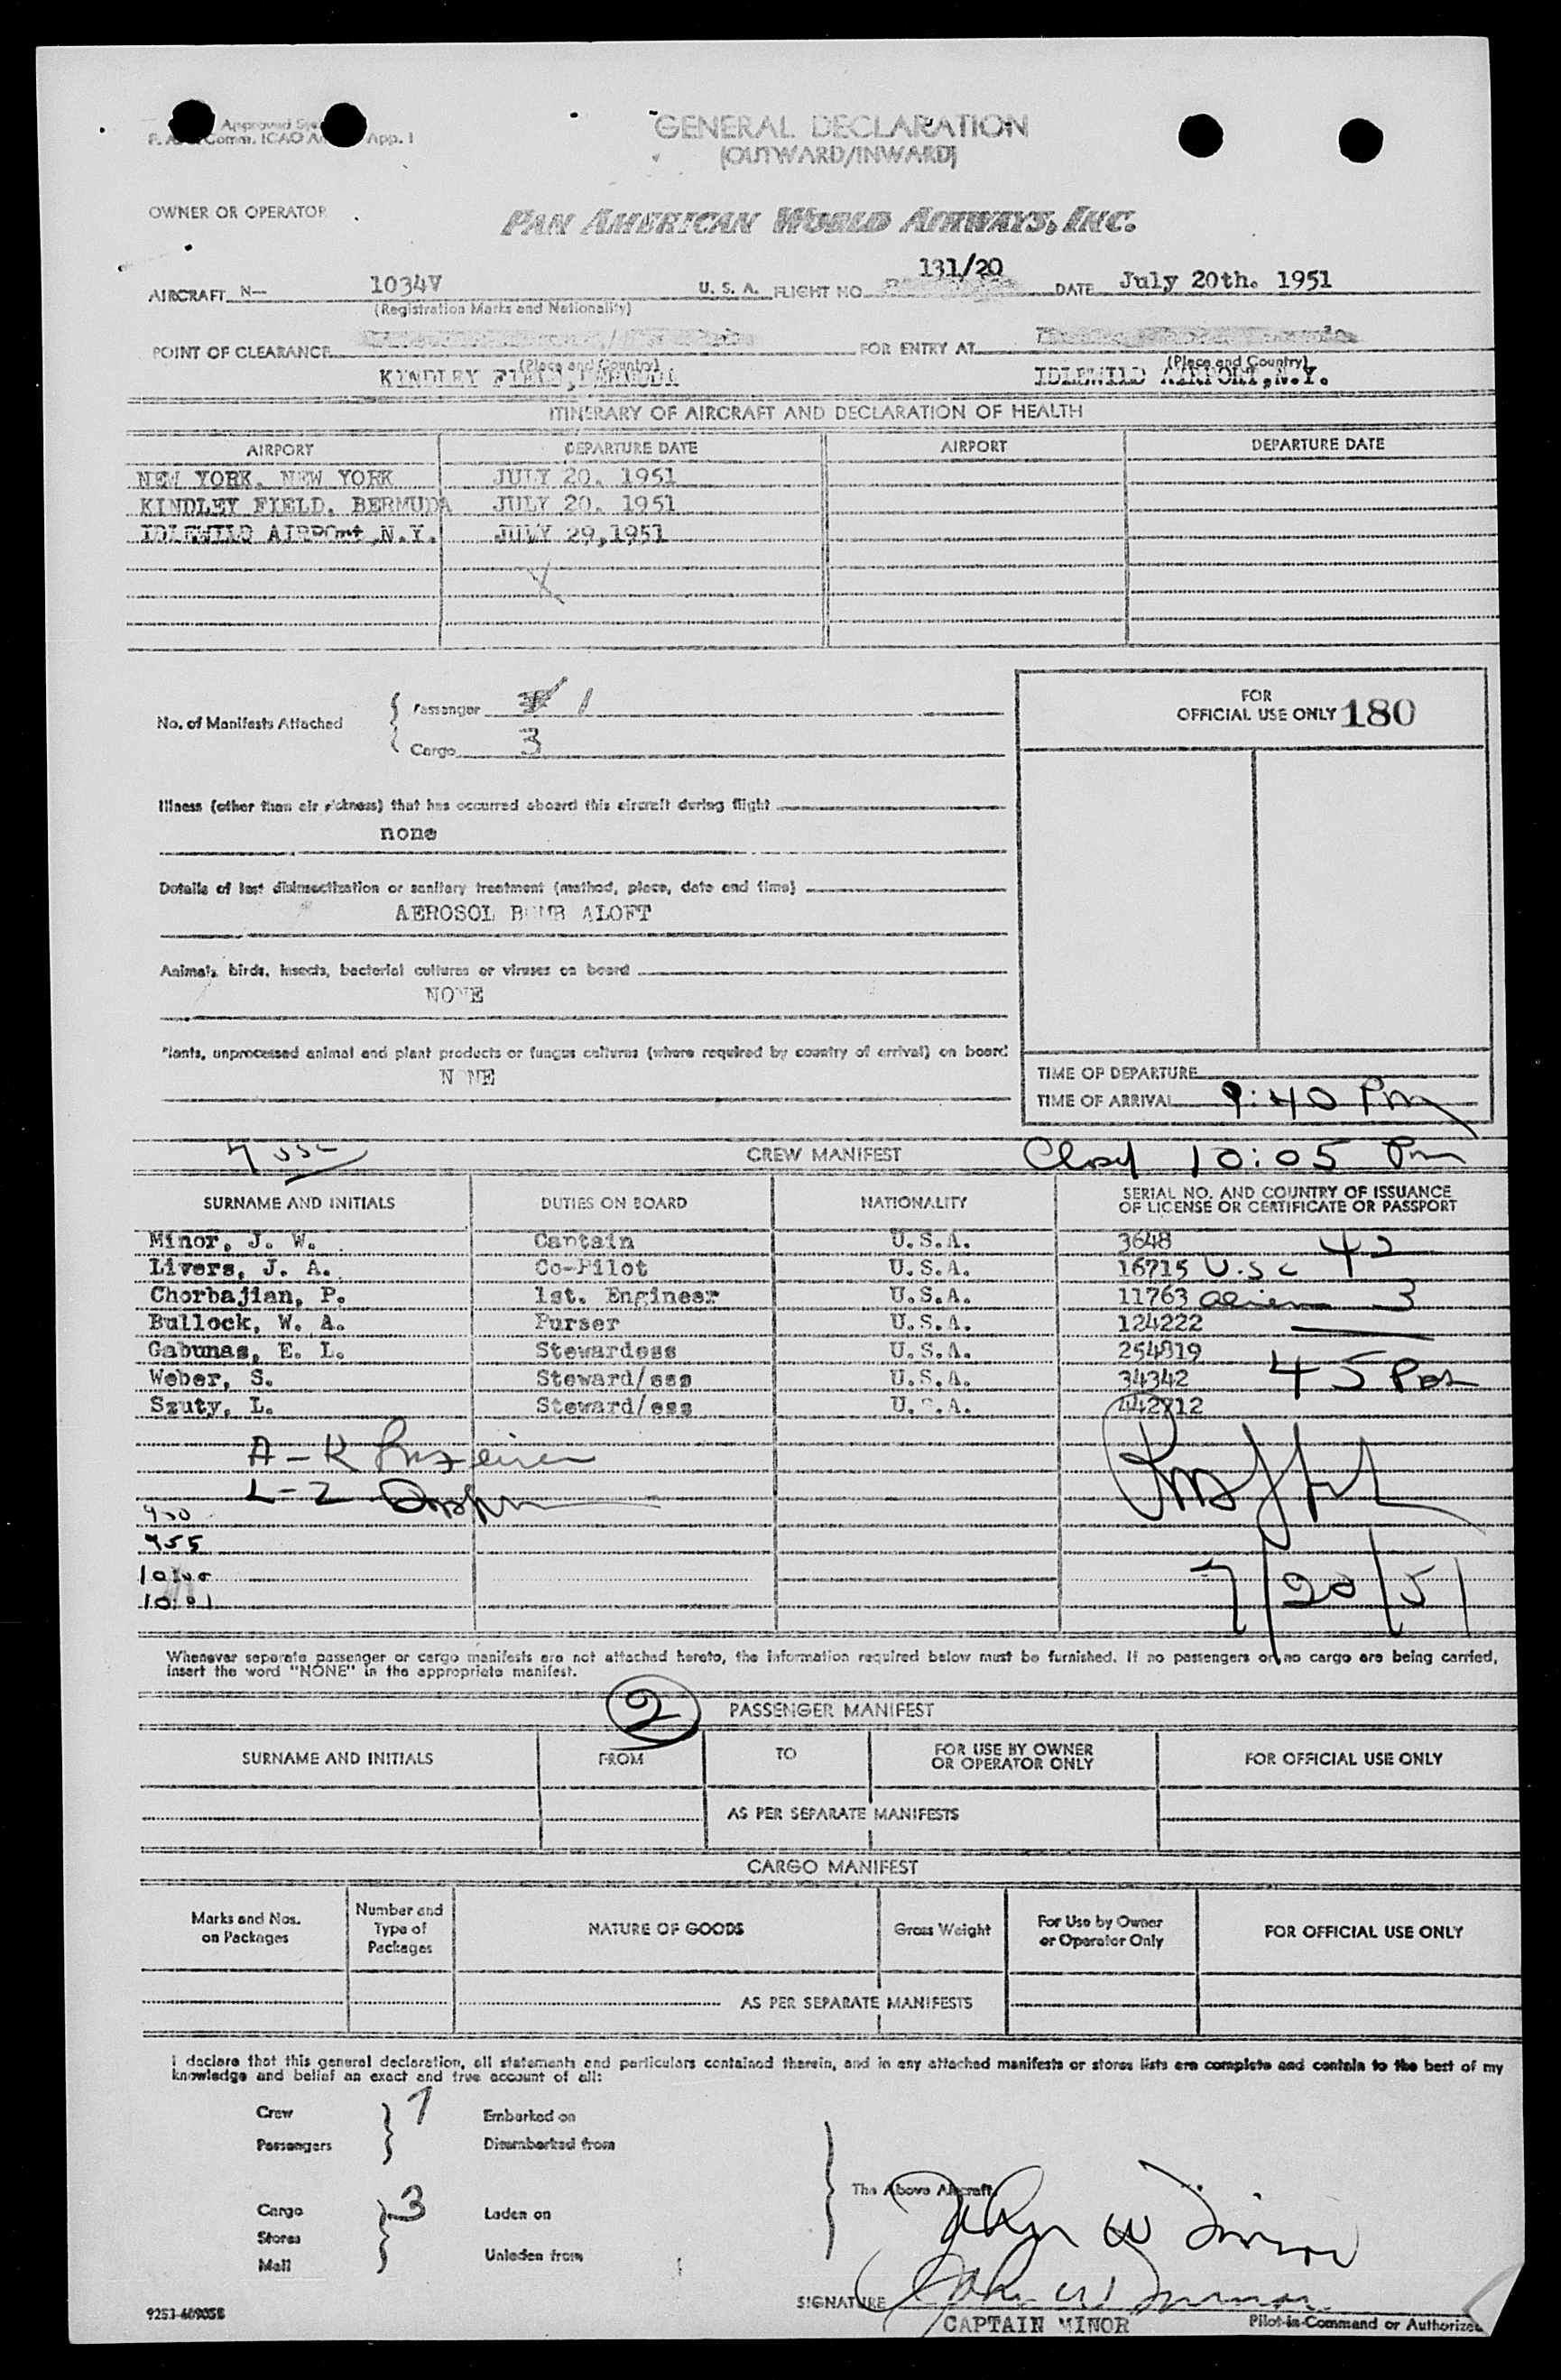 Approved
Comm. ICAO App. 1
GENERAL DECLARATION
(OUTWARD/INWARD)
OWNER OR OPERATOR
PAN AMERICAN WORLD AIRWAYS, INC.
AIRCRAFT N- 1034V U. S. A. FLIGHT NO 131/20 DATE July 20th. 1951
(Registration Marks and Nationality)
POINT OF CLEARANCE FOR ENTRY AT
(Place and Country) (Place and Country)
KINDLEY FIELD, BERMUDA IDLEWILD AIRPORT, N.Y.
ITINERARY OF AIRCRAFT AND DECLARATION OF HEALTH
AIRPORT DEPARTURE DATE AIRPORT DEPARTURE DATE
NEW YORK. NEW YORK JULY 20. 1951
KINDLEY FIELD. BERMUDA JULY 20. 1951
IDLEWILD AIRPOrt ,N.Y. JULY 29,1951
X
FOR
OFFICIAL USE ONLY 180
No. of Manifests Attached
Passenger 1
Cargo 3
Illness (other than air sickness) that has occurred aboard this aircraft during flight
none
Details of last disinsectization or sanitary treatment (method, place, date and time)
AEROSOL BOMB ALOFT
Animals, birds, insects, bacterial cultures or viruses on board
NONE
Plants, unprocessed animal and plant products or fungus cultures (where required by country of arrival) on board
NONE
TIME OF DEPARTURE
TIME OF ARRIVAL 9:40 Pm
7 usc CREW MANIFEST Closed 10:05 Pm
SURNAME AND INITIALS DUTIES ON BOARD NATIONALITY SERIAL NO. AND COUNTRY OF ISSUANCE
OF LICENSE OR CERTIFICATE OR PASSPORT
Minor, J. W. Captain U.S.A. 3648
Livers, J. A. Co-Pilot U.S.A. 16715 U.S.C 42
Chorbajian, P. 1st. Engineer U.S.A. 11763 alien 3
Bullock, W. A. Purser U.S.A. 124222
Gabunas, E. L. Stewardess U.S.A. 254819
Weber, S. Steward/ess U.S.A. 34342 45 Pas
Szuty, L. Steward/ess U.S.A. 442712
A - K
L - Z
955
10:01
7/20/51
Whenever separate passenger or cargo manifests are not attached hereto, the information required below must be furnished. If no passengers or no cargo are being carried,
insert the word "NONE" in the appropriate manifest.
2 PASSENGER MANIFEST
SURNAME AND INITIALS FROM TO FOR USE BY OWNER
OR OPERATOR ONLY FOR OFFICIAL USE ONLY
AS PER SEPARATE MANIFESTS
CARGO MANIFEST
Marks and Nos.
on Packages Number and
Type of
Packages NATURE OF GOODS Gross Weight For Use by Owner
or Operator Only FOR OFFICIAL USE ONLY
AS PER SEPARATE MANIFESTS
I declare that this general declaration, all statements and particulars contained therein, and in any attached manifests or stores lists are complete and contain to the best of my
knowledge and belief an exact and true account of all:
Crew 7 Embarked on
Passengers Disembarked from
The Above Aircraft
Cargo 3 Laden on
Stores
Mail Unladen from
John W Minor
SIGNATURE John W Minor
CAPTAIN MINOR Pilot-in-Command or Authorized